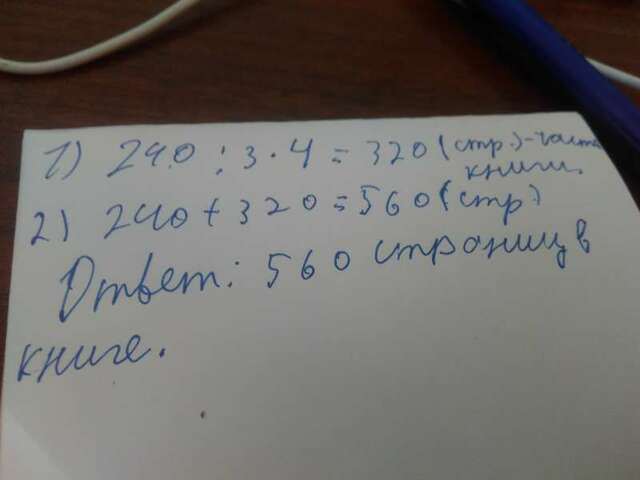 1) 240 : 3 · 4 = 320 (стр.) - часть
книги.
2) 240 + 320 = 560 (стр)
Ответ: 560 страниц в
книге.